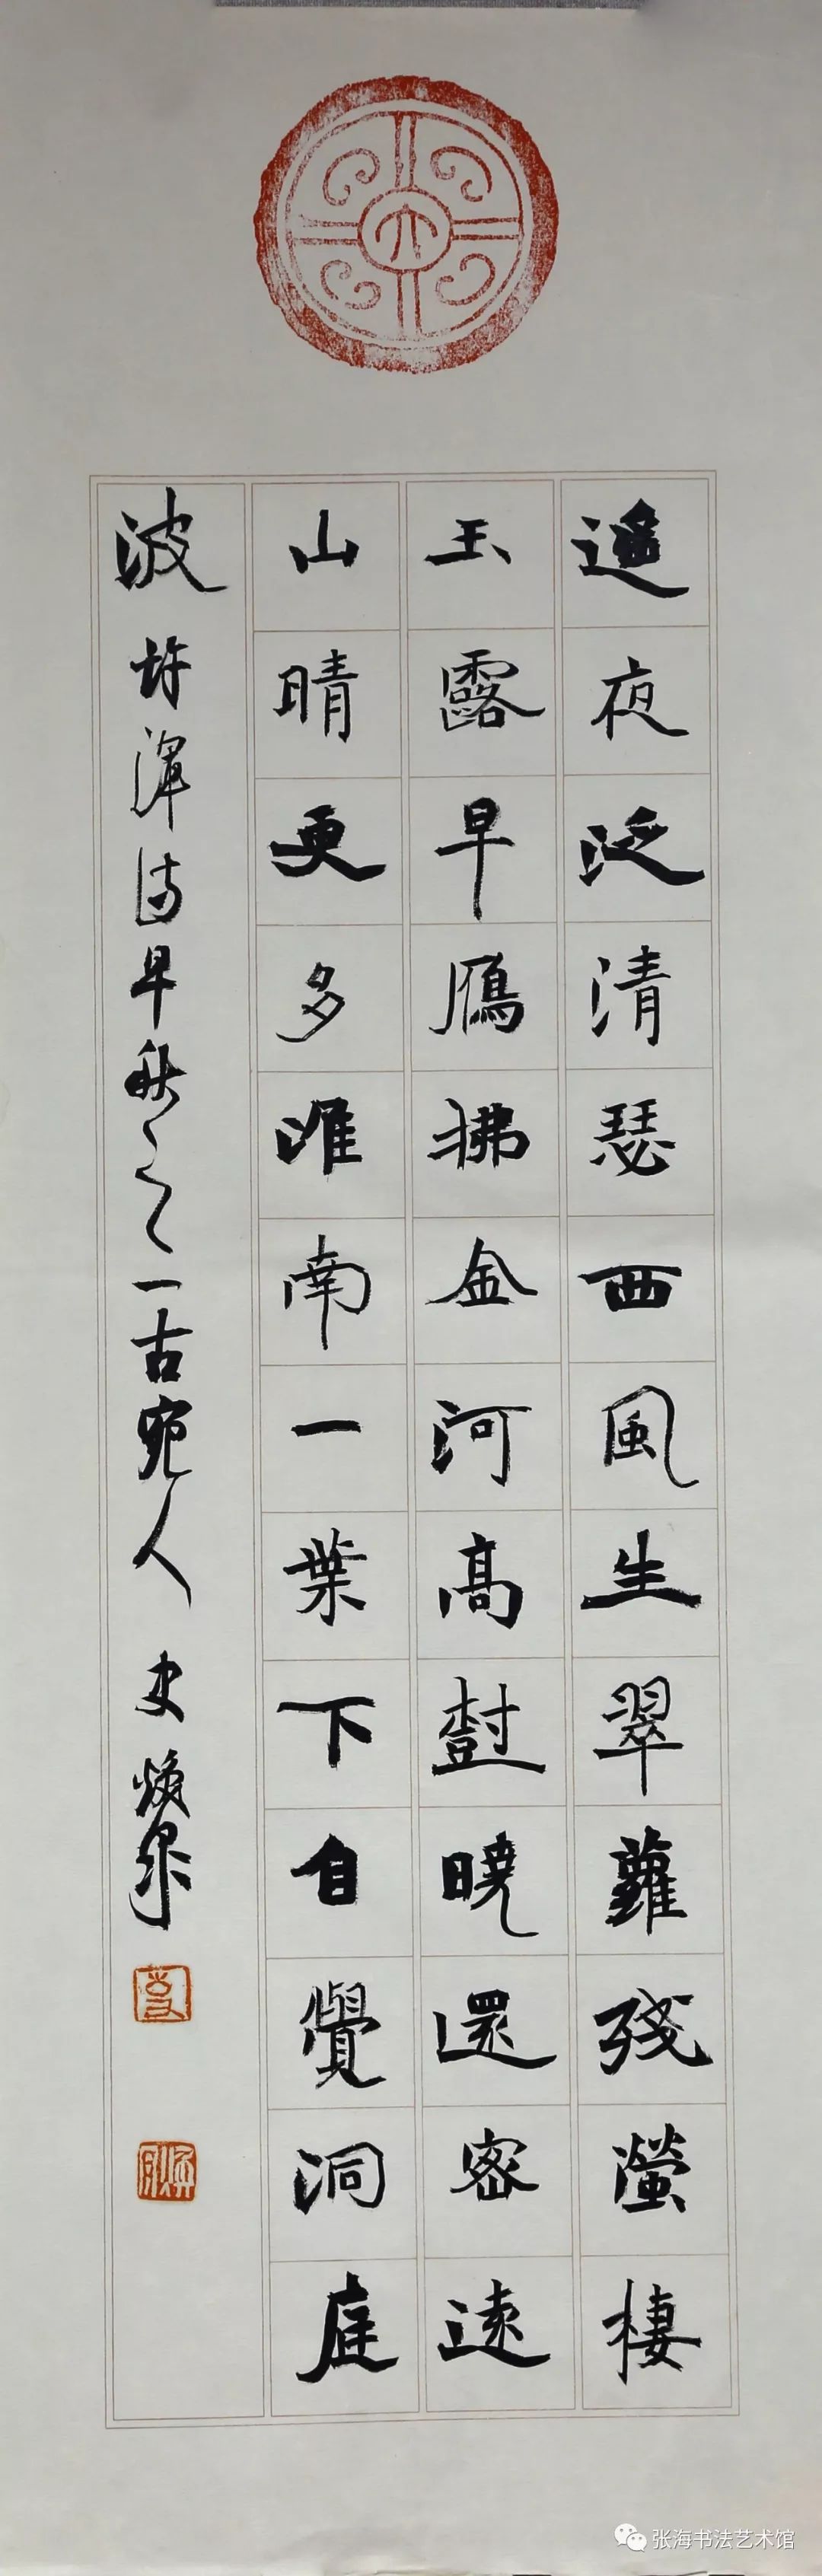 遙夜泛清瑟西風生翠蘿殘螢棲
玉露早鴈拂金河高樹曉還密遠
山晴更多淮南一葉下自覺洞庭
波 許渾詩早秋之一古宛人 史煥
张海书法艺术馆